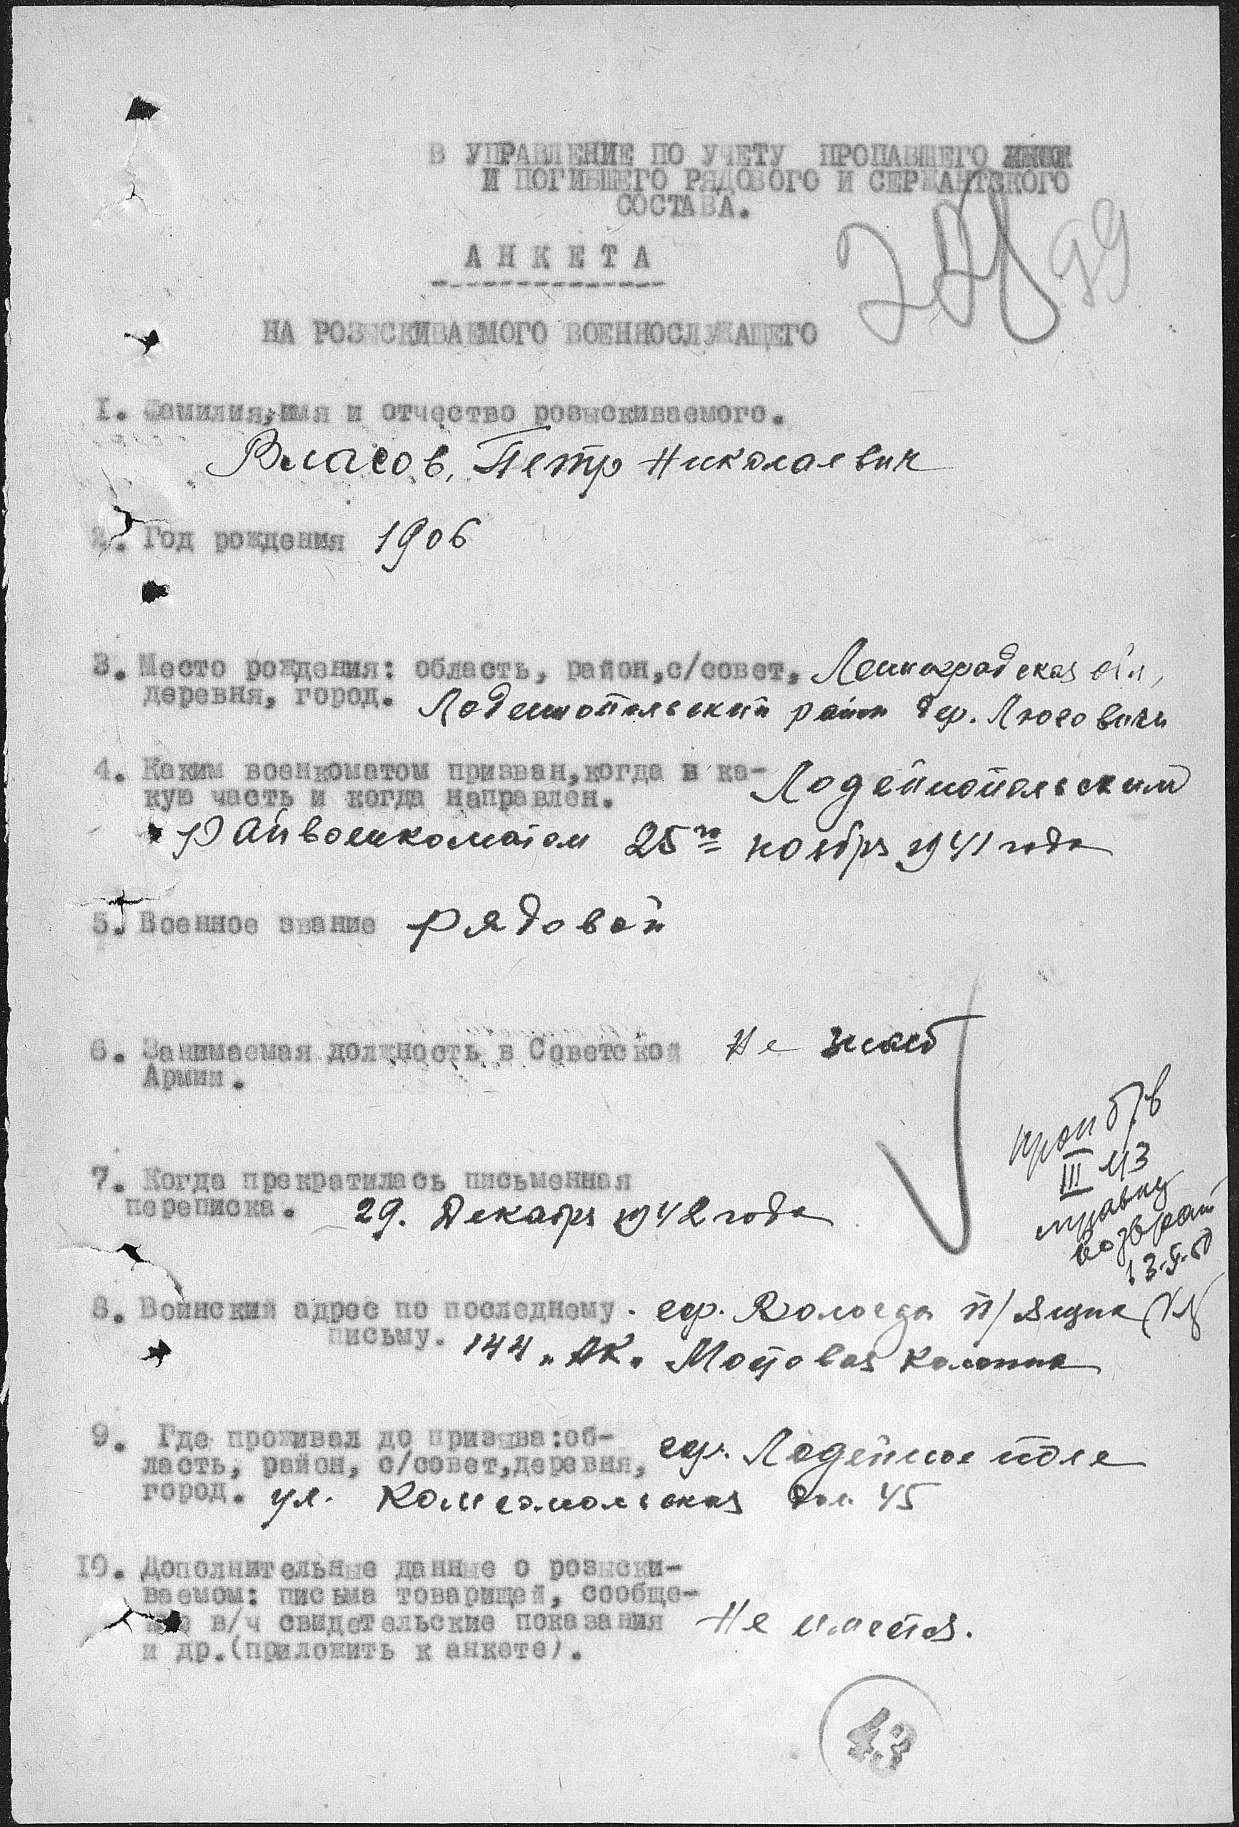 В УПРАВЛЕНИЕ ПО УЧЕТУ ПРОПАВШЕГО
И ПОГИБШЕГО РЯДОВОГО И СЕРЖАНТСКОГО
СОСТАВА.
99
АНКЕТА
НА РОЗЫСКИВАЕМОГО ВОЕННОСЛУЖАЩЕГО
1. Фамилия, имя и отчество розыскиваемого.
Власов, Петр Николаевич
2. Год рождения 1906
3. Место рождения: область, район, с/совет, Ленинградская обл,
деревня, город. Лодейнопольский район дер.
4. Каким военкоматом призван, когда и ка- Лодейнопольским
кую часть и когда направлен.
Райвоенкоматом 25го ноября 1941 года
5. Военное звание рядовой
6. Занимаемая должность в Советской Не знаю
Армии.
7. Когда прекратилась письменная
переписка. 29. Декабря 1942 года
проп б/в
III 43
справку
возврат
8. Воинский адрес по последнему гор. Вологда п/ящик
письму. 144. АК. колонна
9. Где проживал до призыва: об-
ласть, район, с/совет, деревня, гор. Лодейное поле
город. ул. Комсомольская дом 45
10. Дополнительные данные о розыски-
ваемом: письма товарищей, сообще-
ние в/ч свидетельские показания Не имеется.
и др. (приложить к анкете).
43